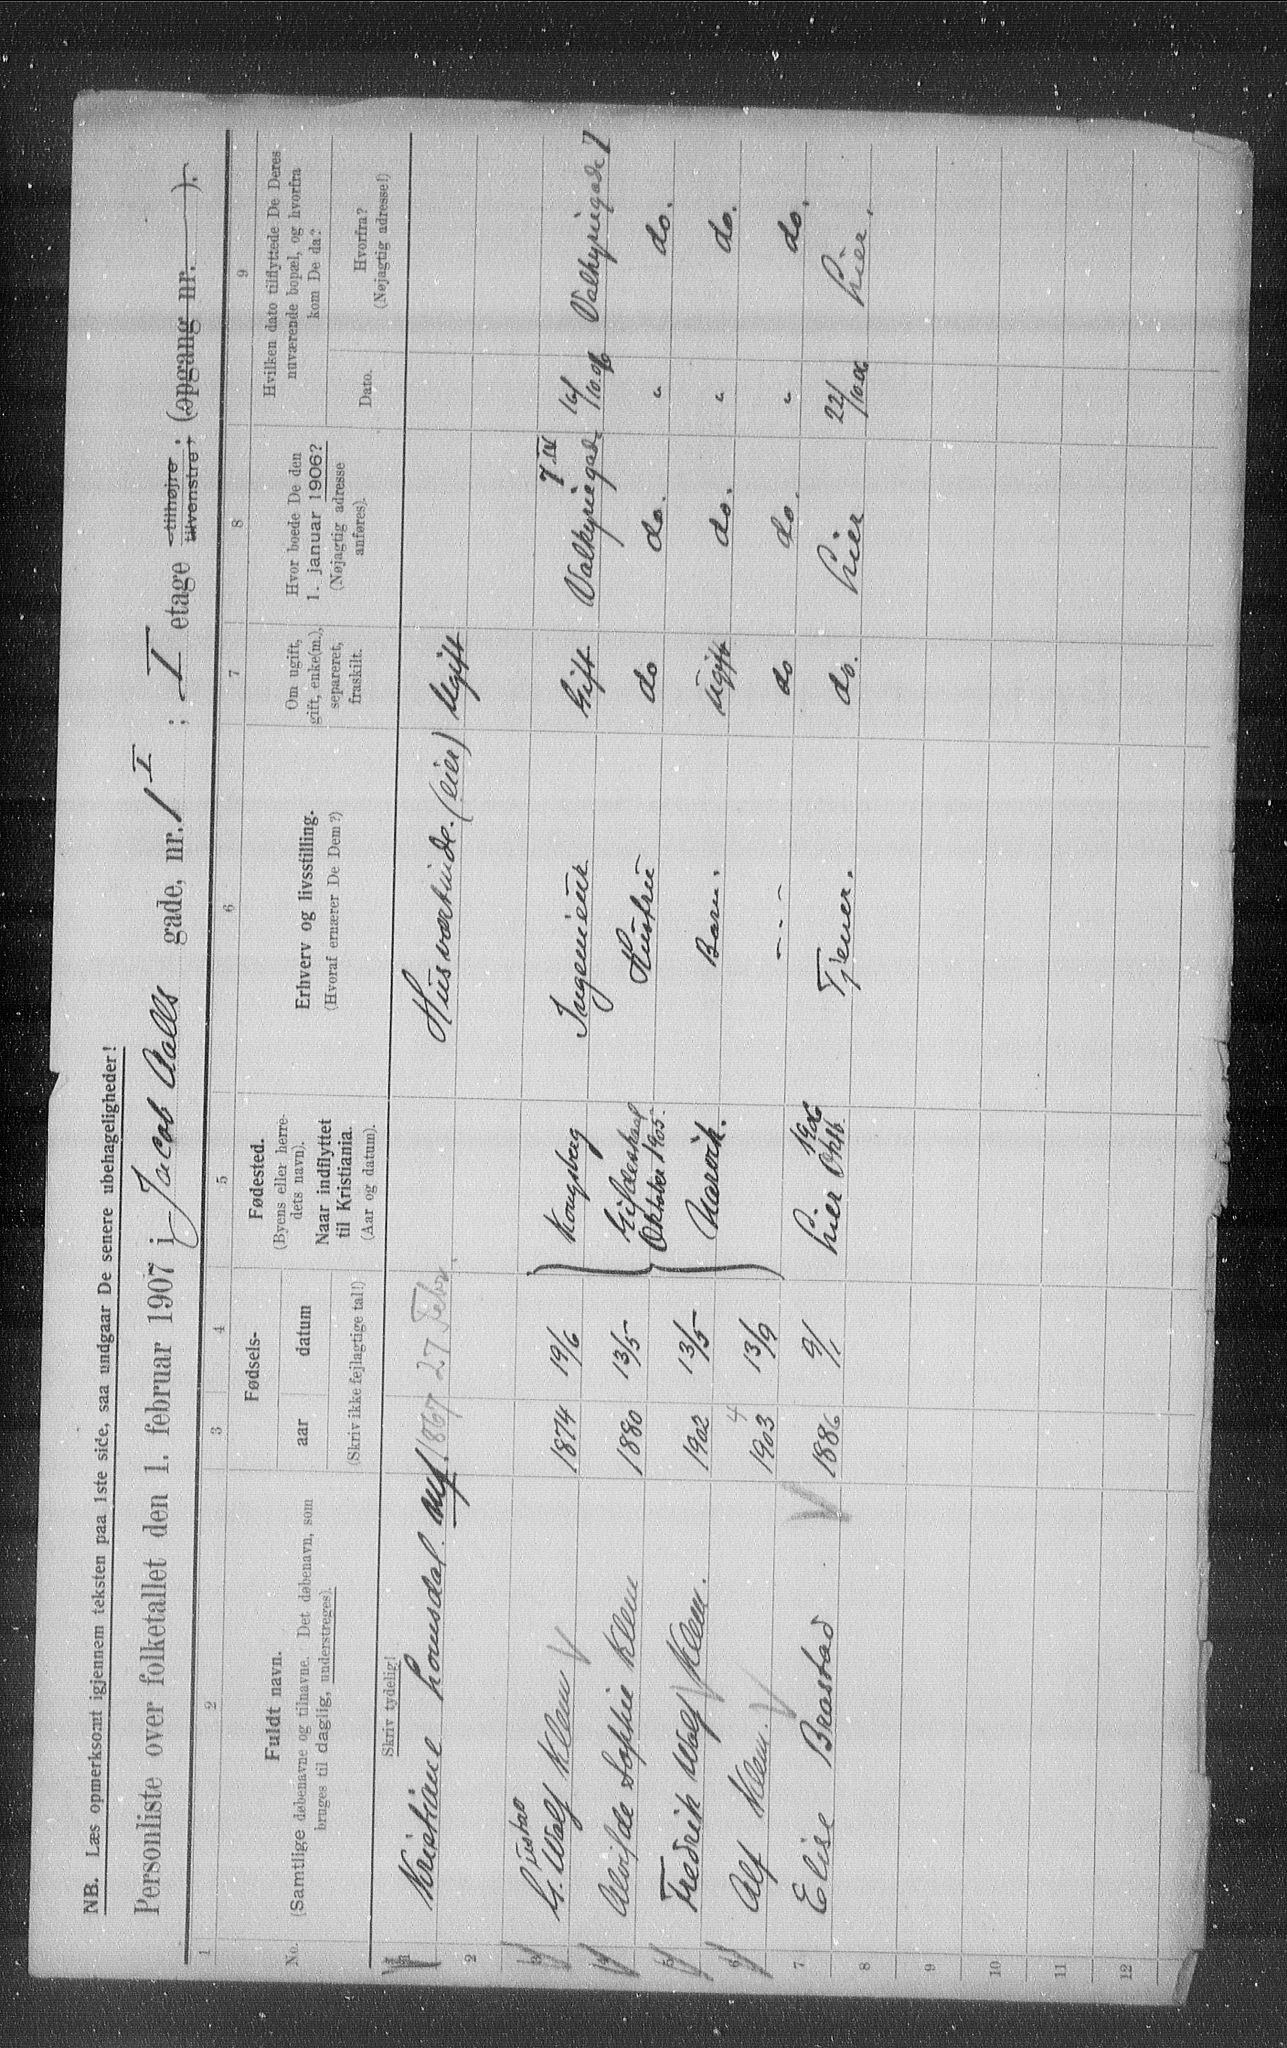 NB. Læs opmerksomt igjennem teksten paa 1ste side, saa undgaar De senere ubehageligheder!
Personliste over folketallet den 1. februar 1907 i Jacob Aalls gade, nr. 1 I ; I etage tilhøjre tilvenstre; (opgang nr. ).
1 2 3 4 5 6 7 8 9
No.
Fuldt navn.
(Samtlige døbenavne og tilnavne. Det døbenavn, som
bruges til daglig, understreges).
Fødsels-
aar datum
(Skriv ikke fejlagtige tal!)
Fødested.
(Byens eller herre-
dets navn).
Naar indflyttet
til Kristiania.
(Aar og datum).
Erhverv og livsstilling.
(Hvoraf ernærer De Dem?)
Om ugift,
gift, enke(m.),
separeret,
fraskilt.
Hvor boede De den
1. januar 1906?
(Nøjagtig adresse
anføres).
Hvilken dato tilflyttede De Deres
nuværende bopæl, og hvorfra
kom De da?
Dato.
Hvorfra?
(Nøjagtig adresse!)
Skriv tydelig!
1 Kristiane Lomsdal. 1867 27 Febr. Husværtinde. (eier) Ugift
2
3 Gustav G. Wolf Klem 1874 19/6 Kongsberg Ingeniør Gift Valkyriegade 7 IV 16/10.06 Valkyriegade 7
4 Alvilde Sophie Klem 1880 13/5 Gildeskaal Oktober 1905. Hustru do do. " do.
5 Fredrik Wolf Klem. 1902 13/5 Narvik. Barn. ugift do. " do.
6 Alf Klem. 1903 4 13/9 - - - do do. " do.
7 Elise Brastad 1886 9/1 Lier Oktb. 1906 Tjener. do. Lier 22/10.06 Lier.
8
9
10
11
12